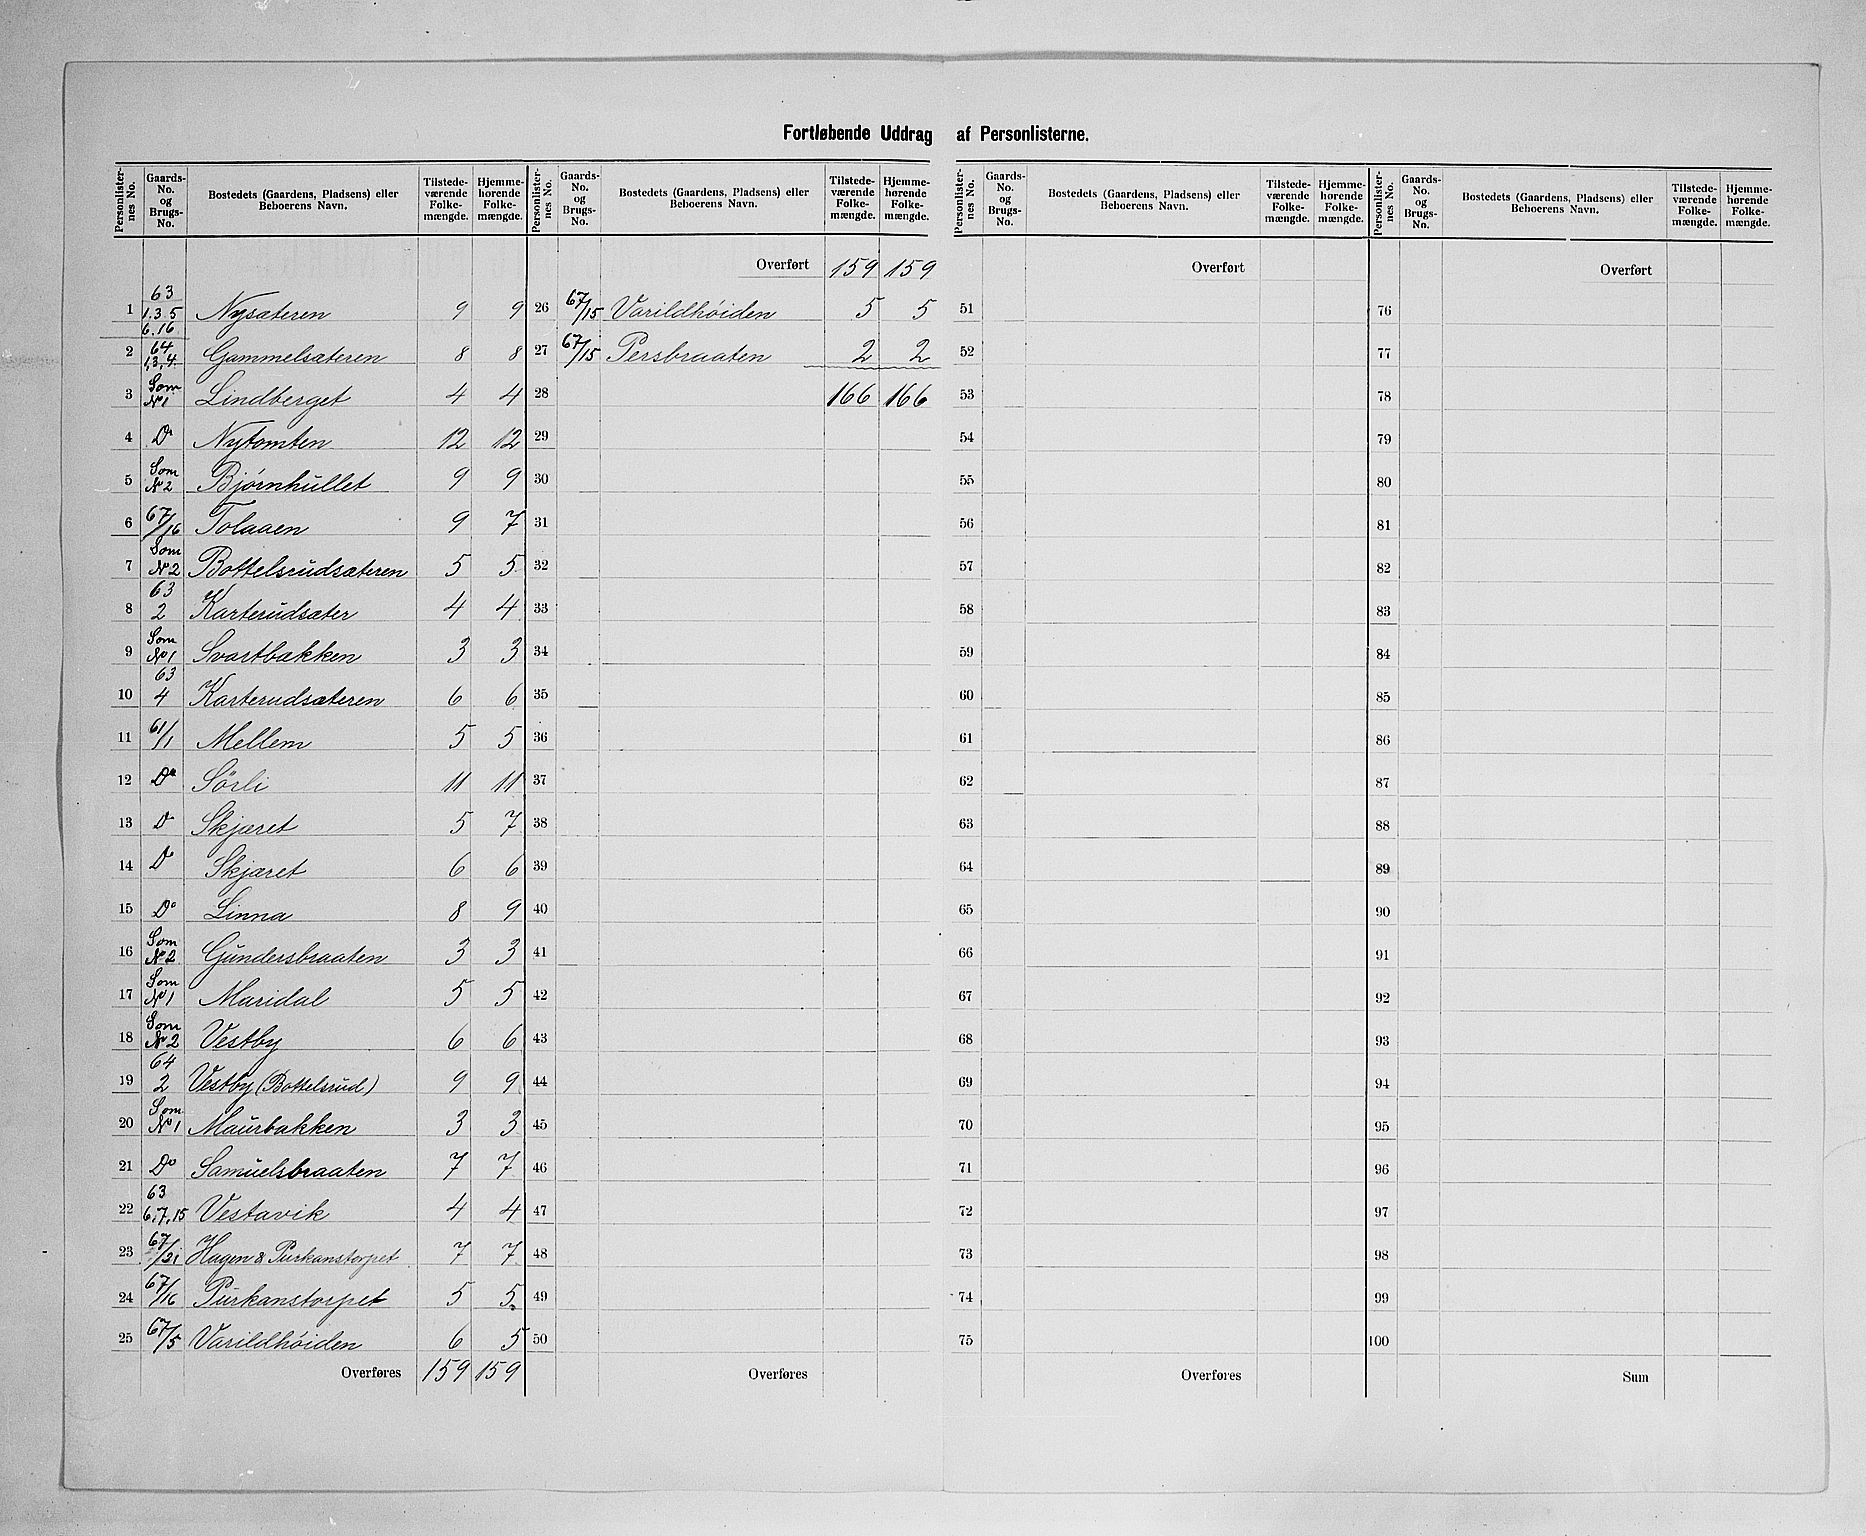 Fortløbende Uddrag af Personlisterne.
Personlisternes No. | Gaards-No. og Brugs-No. | Bostedets (Gaardens, Pladsens) eller Beboerens Navn. | Tilstedeværende Folkemængde. | Hjemmehørende Folkemængde.
1 | 63 1.3.5 6.16 | Nysæteren | 9 | 9
2 | 64 1,3,4. | Gammelsæteren | 8 | 8
3 | Som No 1 | Lindberget | 4 | 4
4 | Do | Nytomten | 12 | 12
5 | Som No 2 | Bjørnhullet | 9 | 9
6 | 67/16 | Tolaaen | 9 | 7
7 | Som No 2 | Bottelsrudsæteren | 5 | 5
8 | 63 2 | Karterudsæter | 4 | 4
9 | Som No 1 | Svartbækken | 3 | 3
10 | 63 4 | Karterudsæteren | 6 | 6
11 | 61/1 | Mellem | 5 | 5
12 | Do | Sörli | 11 | 11
13 | Do | Skjæret | 5 | 7
14 | Do | Skjæret | 6 | 6
15 | Do | Linna | 8 | 9
16 | Som No 2 | Gundersbraaten | 3 | 3
17 | Som No 1 | Maridal | 5 | 5
18 | Som No 2 | Vestby | 6 | 6
19 | 64 2 | Vestby (Bottelsrud) | 9 | 9
20 | Som No 1 | Maurbakken | 3 | 3
21 | Do | Samuelsbraaten | 7 | 7
22 | 63 6,7,15 | Vestavik | 4 | 4
23 | 67/21 | Hagen & Purkanstorpet | 7 | 7
24 | 67/16 | Purkanstorpet | 5 | 5
25 | 67/5 | Varildhöiden | 6 | 5
Overføres | 159 | 159
Personlisternes No. | Gaards-No. og Brugs-No. | Bostedets (Gaardens, Pladsens) eller Beboerens Navn. | Tilstedeværende Folkemængde. | Hjemmehørende Folkemængde.
Overført | 159 | 159
26 | 67/15 | Varildhöiden | 5 | 5
27 | 67/15 | Persbraaten | 2 | 2
28 | 166 | 166
29
30
31
32
33
34
35
36
37
38
39
40
41
42
43
44
45
46
47
48
49
50
Overføres
Personlisternes No. | Gaards-No. og Brugs-No. | Bostedets (Gaardens, Pladsens) eller Beboerens Navn. | Tilstedeværende Folkemængde. | Hjemmehørende Folkemængde.
Overført
51
52
53
54
55
56
57
58
59
60
61
62
63
64
65
66
67
68
69
70
71
72
73
74
75
Overføres
Personlisternes No. | Gaards-No. og Brugs-No. | Bostedets (Gaardens, Pladsens) eller Beboerens Navn. | Tilstedeværende Folkemængde. | Hjemmehørende Folkemængde.
Overført
76
77
78
79
80
81
82
83
84
85
86
87
88
89
90
91
92
93
94
95
96
97
98
99
100
Sum